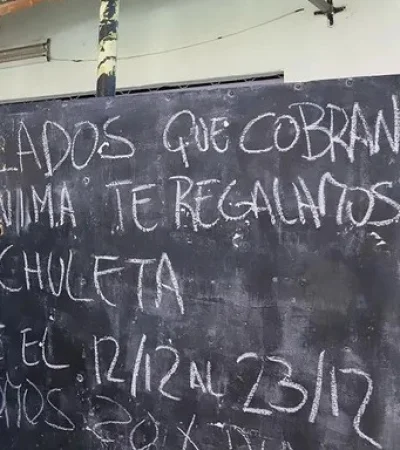 LADOS QUE COBRAN
NIMA TE REGALAMOS
CHULETA
EL 12/12 AL 23/12
MOS 20 X DIA